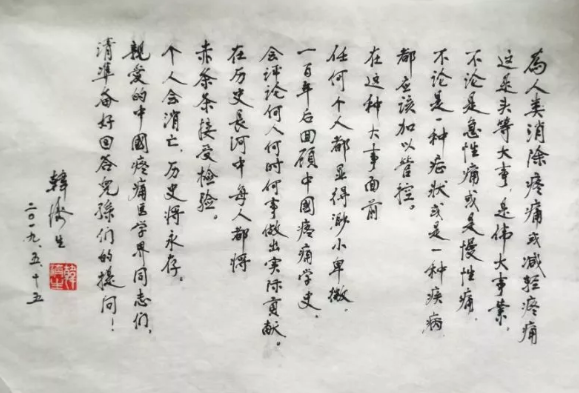 為人类消除疼痛或减轻疼痛
这是头等大事,是伟大事業,
不论是急性痛或是慢性痛,
不论是一种症狀或是一种疾病
都应该加以管控。
在这种大事面前
任何个人都显得渺小卑微,
一百年后回顾中國疼痛学史,
会评论何人何时何事做出实际貢献。
在历史長河中每人都将
赤条条接受检验。
个人会消亡,历史将永存,
親爱的中國疼痛医学界同志们,
請準备好回答兒孫们的提问!
韓济生
二〇一九.五.十五